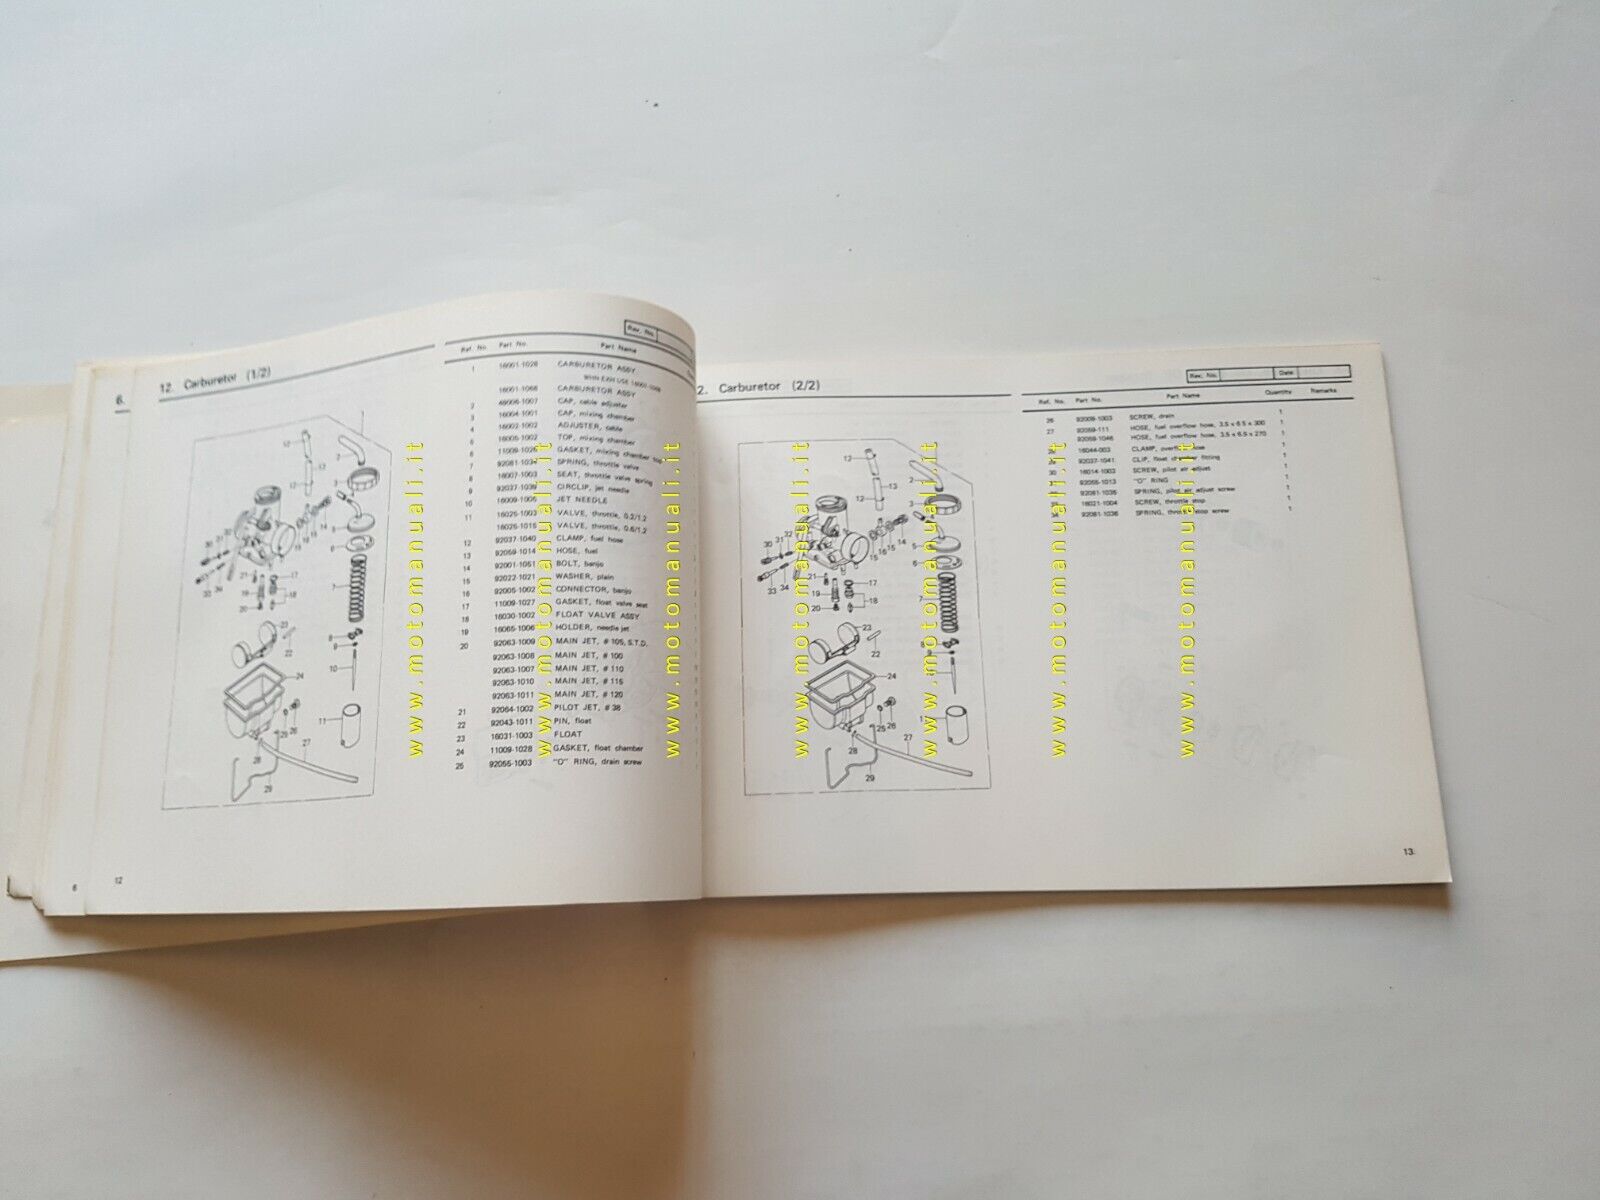 6.
12. Carburetor (1/2)
Rev. No.
Ref. No. Part No. Part Name
1 16001-1028 CARBURETOR ASSY
16001-1068 CARBURETOR ASSY
2 CAP, cable adjuster
3 16004-1001 CAP, mixing chamber
4 16002-1002 ADJUSTER, cable
5 16005-1002 TOP, mixing chamber
6 GASKET, mixing chamber top
7 SPRING, throttle valve
8 16007-1003 SEAT, throttle valve spring
9 92037-1039 CIRCLIP, jet needle
10 16009-1006 JET NEEDLE
11 16025-1003 VALVE, throttle, 0.2/1.2
VALVE, throttle, 0.6/1.2
12 92037-1040 CLAMP, fuel hose
13 92059-1014 HOSE, fuel
14 92001-1051 BOLT, banjo
15 92022-1021 WASHER, plain
16 92005-1002 CONNECTOR, banjo
17 11009-1027 GASKET, float valve seat
18 16030-1002 FLOAT VALVE ASSY
19 16065-1006 HOLDER, needle jet
20 92063-1009 MAIN JET, # 105, S.T.D.
92063-1008 MAIN JET, # 100
92063-1007 MAIN JET, # 110
92063-1010 MAIN JET, # 115
92063-1011 MAIN JET, # 120
21 92064-1002 PILOT JET, # 38
22 92043-1011 PIN, float
23 16031-1003 FLOAT
24 11009-1028 GASKET, float chamber
25 92055-1003 "O" RING, drain screw
6
12
2. Carburetor (2/2)
Rev. No. Date
Ref. No. Part No. Part Name Quantity Remarks
26 92009-1003 SCREW, drain 1
27 92059-111 HOSE, fuel overflow hose, 3.5 x 6.5 x 300 1
92059-1046 HOSE, fuel overflow hose, 3.5 x 6.5 x 270 1
16044-003 CLAMP, overflow hose 1
92037-1041 CLIP, float chamber fitting 1
30 16014-1003 SCREW, pilot air adjust 1
92055-1013 "O" RING 1
SPRING, pilot air adjust screw 1
16021-1004 SCREW, throttle stop 1
34 SPRING, throttle stop screw 1
13
www.motomanuali.it
www.motomanuali.it
www.motomanuali.it
www.motomanuali.it
www.motomanuali.it
www.motomanuali.it
www.motomanuali.it